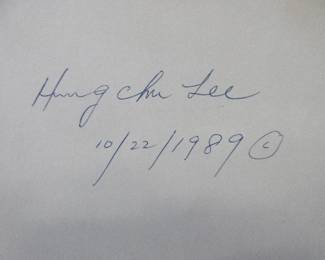 Hung chu Lee
10/22/1989 ©